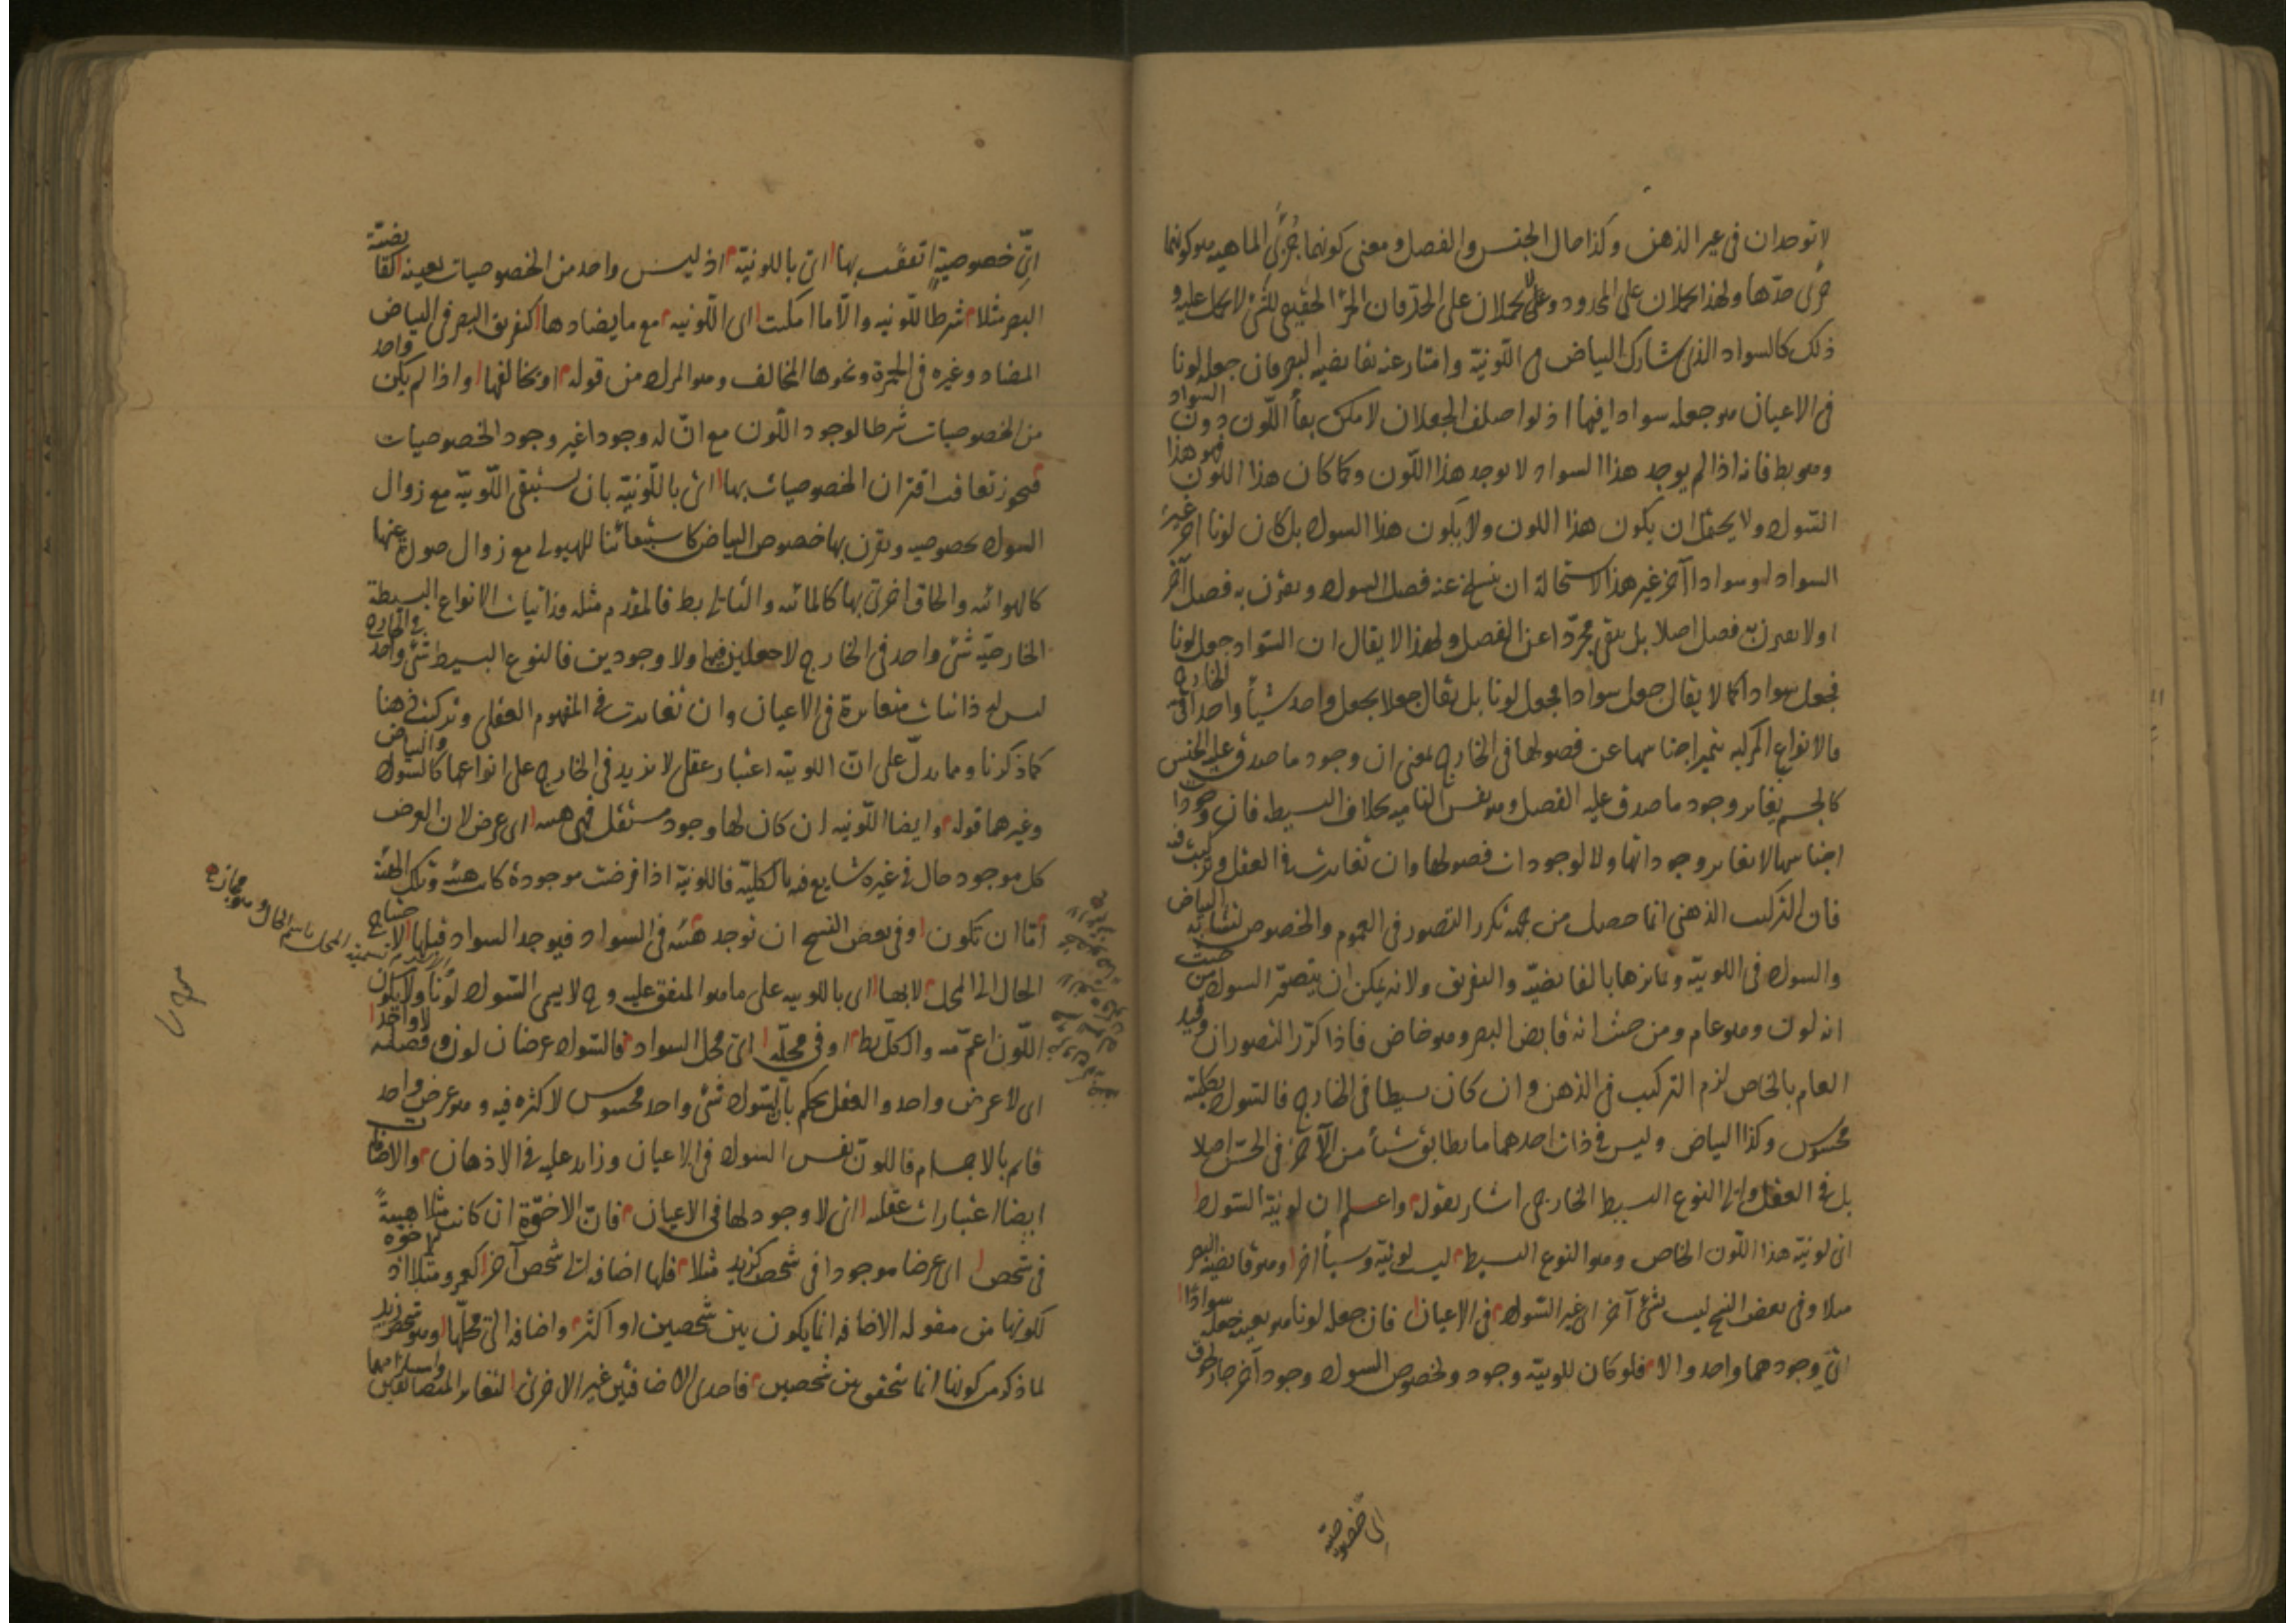 لا توجدان فى غير الذهن وكذا حال الجنس والفصل ومعنى كونهما جزئى الماهيه هو كونهما
جزئى حدّها ولهذا يحملان على المحدود ولا يحملان على الحدّ فان الجزء الحقيقى للشئ لا يحمل عليه و
ذلك كالسواد الذى شارك البياض فى اللّونيّة وامتاز عنه بقابضيه البصر فان جعله لونا
فى الاعيان هو جعله سوادا فيها اذ لو اختلف الجعلان لامكن بقاء اللّون دون السواد
وهو بط فانه اذا لم يوجد هذا السواد لا يوجد هذا اللّون وكما كان هذا اللون فهو هذا
السّواد ولا يحتمل ان يكون هذا اللون ولا يكون هذا السواد بل كان لونا آخر غير
السواد او سوادا آخر غير هذا لاستحالة ان ينسلخ عنه فصل السواد ويقرن به فصل آخر
او لا يقرن به فصل اصلا بل يبقى مجرّدا عن الفصل ولهذا لا يقال ان السّواد جعل لونا
فجعل سوادا كما لا يقال جعل سوادا فجعل لونا بل يقال جعلا بجعل واحد شيأ واحدا فى الخارج
فالانواع المركبه يتميز اجناسها عن فصولها فى الخارج بمعنى ان وجود ما صدق عليه الجنس
كالجسم يغاير وجود ما صدق عليه الفصل وهو نفس الناميه بخلاف البسيطه فان وجودا
اجناسها لا تغاير وجوداتها ولا لوجودات فصولها وان تغايرت فى العقل وتركبت فيه
فان التركيب الذهنى انما حصل من جهة تكرر التصور فى العموم والخصوص لتشابه البياض
والسواد فى اللونيّة وتمايزها بالقابضيّه والتفريق ولانه يمكن ان يتصوّر السواد من حيث
انه لون وهو عام ومن حيث انه قابض البصر وهو خاص فاذا كرّر التصوران وقيد
العام بالخاص لزم التركيب فى الذهن وان كان بسيطا فى الخارج فالسّواد بكليته
محسوس وكذا البياض وليس فى ذات احدهما ما يطابق شيأ من الآخر فى الحسّ اصلا
بل فى العقل والى النوع البسيط الخارجى اشار بقوله واعلم ان لونيّة السّواد
اى لونيّة هذا اللّون الخاص وهو النوع البسيط ليست لونيّة وشيأ آخر وهو قابضيه البصر
مثلا وفى بعض النسخ ليست بشئ آخر اى غير السّواد فى الاعيان فان جعله لونا هو بعينه جعله سوادا
اى وجودهما واحد والا فلو كان للونيّة وجود ولخصوص السواد وجود آخر جاز لحوق
اى خصوصيّة
اىّ خصوصيةٍ اتفقت بها اى باللونيّة اذ ليس واحد من الخصوصيات بعينه كقابضيّة
البصر مثلا شرطا للّونيه والّا ما امكنت اى اللّونيه مع ما يضادها كتفريق البصر فى البياض
المضاد وغيره فى الحمرة ونحوها المخالف وهو المراد من قوله او يخالفها واذا لم يكن واحد
من الخصوصيات شرطا لوجود اللّون مع انّ له وجودا غير وجود الخصوصيات
فيجوز تعاقب اقتران الخصوصيات بها اى باللّونيّه بان يستبقى اللّونيّه مع زوال
السواد بخصوصيه ويقرن بها خصوص البياض كاستبقائنا للهيولى مع زوال صورة عنها
كالهوائيه والحاق اخرى بها كالمائيه والتالى بط فالمقدم مثله وذاتيات الانواع البسيطة
الخارجيّه شئ واحد فى الخارج لا جعلين فيها ولا وجودين فالنوع البسيط شئ واحد فى الخارج
ليس له ذاتيات متغايرة فى الاعيان وان تغايرت فى المفهوم العقلى وتركبت فى ذهننا
كما ذكرنا ومما يدلّ على انّ اللونيّه اعتبار عقلى لا تزيد فى الخارج على انواعها كالسّواد والبياض
وغيرهما قوله وايضا اللّونيه ان كان لها وجود مستقل فهى هيئه اى عرض لان العرض
كل موجود حال فى غيره شايع فيه بالكليّه فاللونيّه اذا فرضت موجودة كانت هيئه وتلك الهيئه
امّا ان تكون وفى بعض النسخ ان توجد هيئه فى السواد فيوجد السواد قبلها لاحتياج
الحال الى المحل لا بها اى باللونيه على ما هو المتفق عليه وح لا يسمى السّواد لونا ولا يكون
اللّون اعمّ منه والكلّ بط او فى محلّه اى محل السواد فالسّواد عرضان لون وفصله لا واحد
اى لا عرض واحد والعقل يحكم بانّ السّواد شئ واحد محسوس لا كثره فيه وهو عرض واحد
قائم بالاجسام فاللون نفس السواد فى الاعيان وزايد عليه فى الاذهان والاضافات
ايضا اعتبارات عقليه اى لا وجود لها فى الاعيان فانّ الاخوّة ان كانت مثلا هيئةً
فى شخص اى عرضا موجودا فى شخص كزيد مثلا فلها اضافه الى شخص آخر كعمرو مثلا اذ الاخوّة
لكونها من مقوله الاضافه انما يكون بين شخصين او اكثر واضافه الى محلّها وهو شخص زيد
لما ذكر من كونها انما يتحقق بين شخصين فاحدى الاضافتين غير الاخرى لتغاير المتضايفين
تسميه المحل باسم الحال وهو مجاز